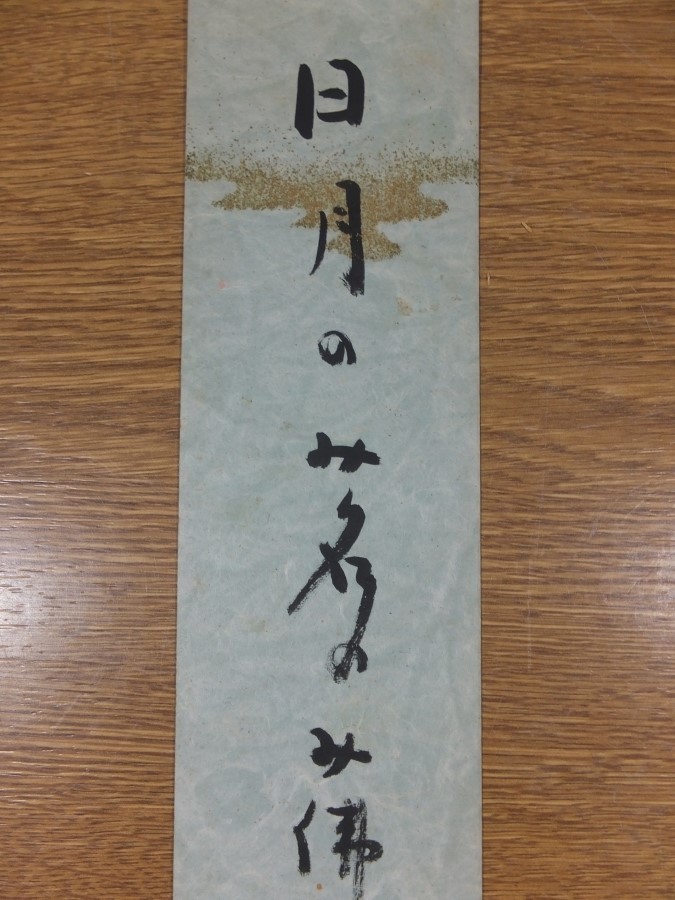 日月のみ名のみ佛